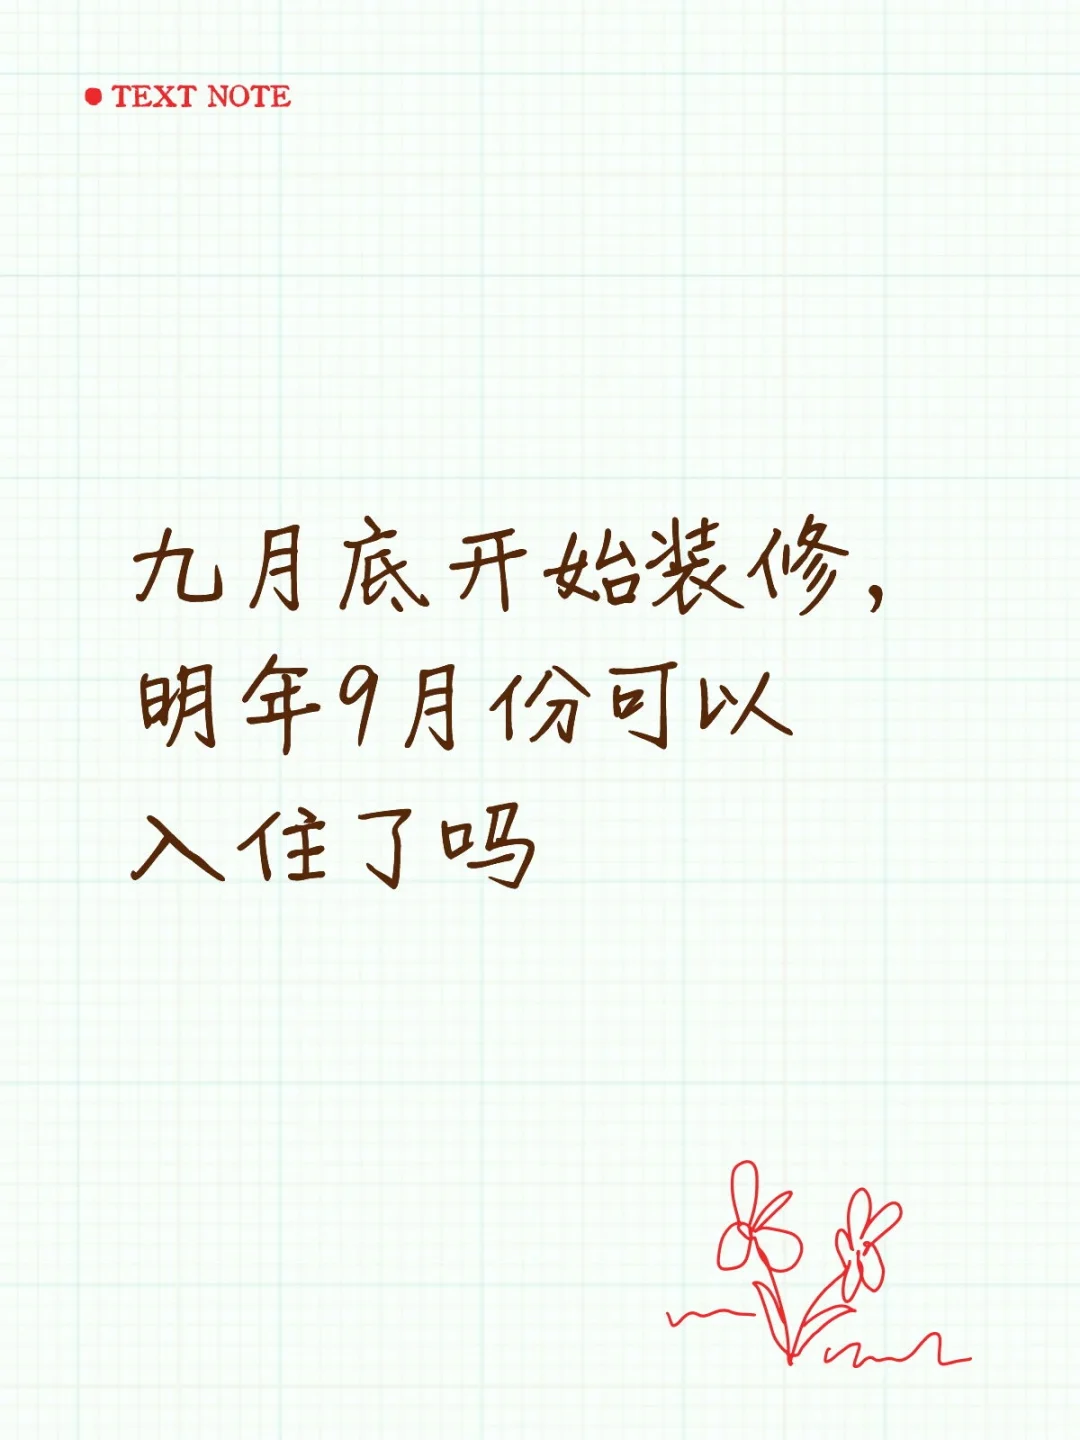 TEXT NOTE
九月底开始装修,
明年9月份可以
入住了吗